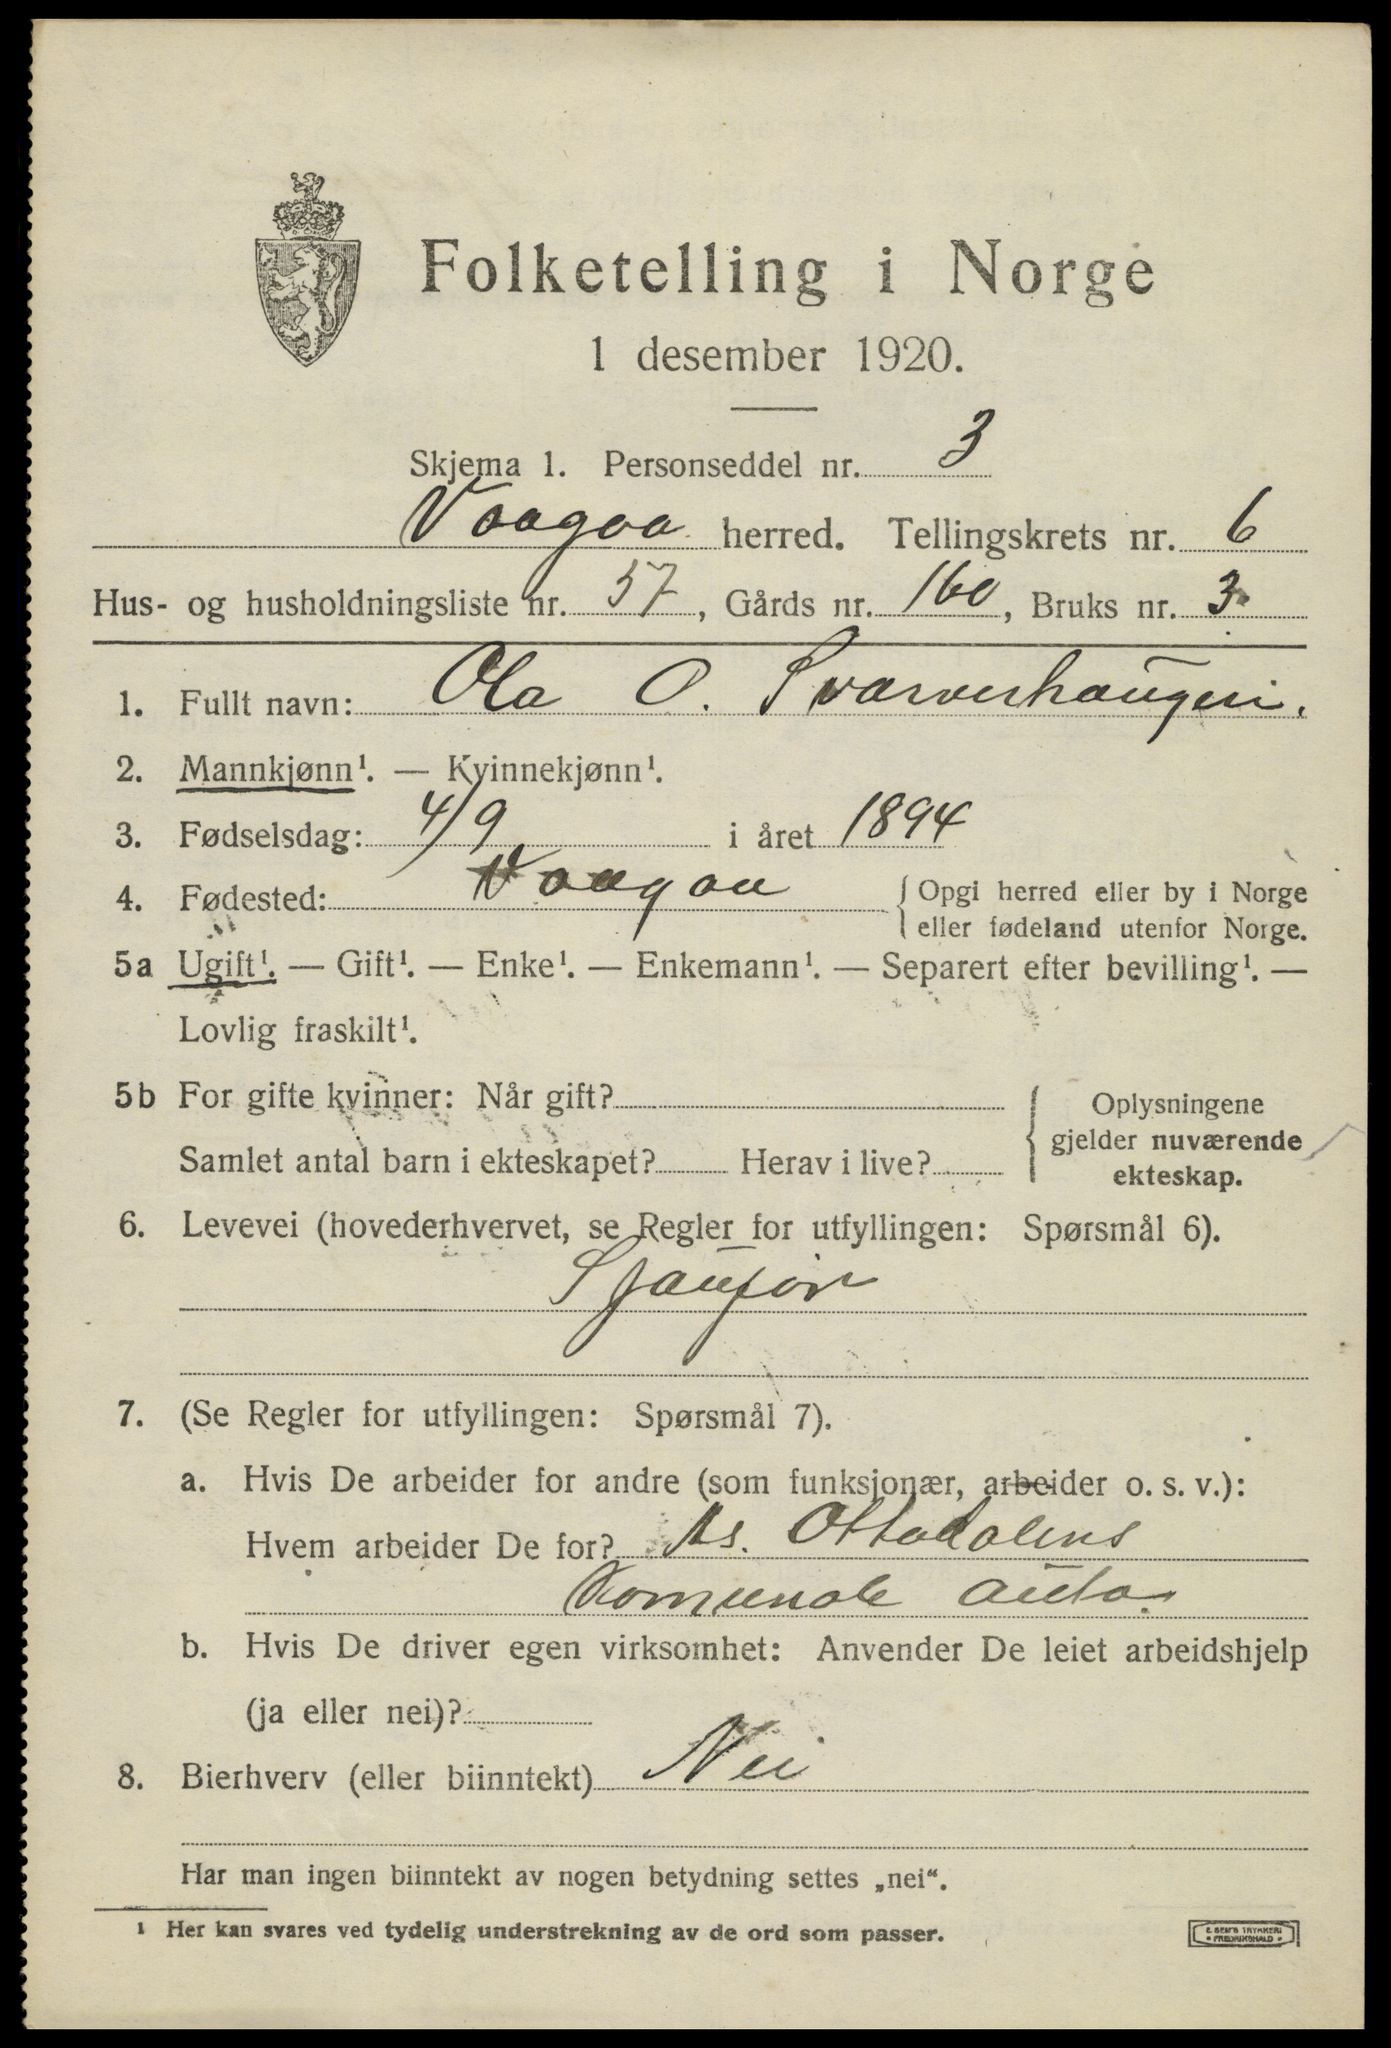 Folketelling i Norge
1 desember 1920.
Skjema 1. Personseddel nr. 3
Vaagaa herred. Tellingskrets nr. 6
Hus- og husholdningsliste nr. 57, Gårds nr. 160, Bruks nr. 3
1. Fullt navn: Ola O. Svarverhaugen.
2. Mannkjønn¹. — Kvinnekjønn¹.
3. Fødselsdag: 4/9 i året 1894
4. Fødested: Vaagaa { Opgi herred eller by i Norge
eller fødeland utenfor Norge.
5a Ugift¹. — Gift¹. — Enke¹. — Enkemann¹. — Separert efter bevilling¹. —
Lovlig fraskilt¹.
5b For gifte kvinner: Når gift?
Samlet antal barn i ekteskapet? Herav i live?
{ Oplysningene
gjelder nuværende
ekteskap.
6. Levevei (hovederhvervet, se Regler for utfyllingen: Spørsmål 6).
Sjauför
7. (Se Regler for utfyllingen: Spørsmål 7).
a. Hvis De arbeider for andre (som funksjonær, arbeider o. s. v.):
Hvem arbeider De for? As. Ottadalens
Komunale auto.
b. Hvis De driver egen virksomhet: Anvender De leiet arbeidshjelp
(ja eller nei)?
8. Bierhverv (eller biinntekt) Nei
Har man ingen biinntekt av nogen betydning settes „nei“.
¹ Her kan svares ved tydelig understrekning av de ord som passer.
E. SEM'S TRYKKERI
• FREDRIKSHALD •